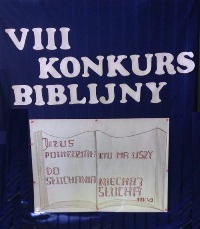 VIII
KONKURS
BIBLIJNY
JEZUS
POWIEDZIAŁ
DO
SŁUCHANIA
KTO MA USZY
NIECHAJ
SŁUCHA